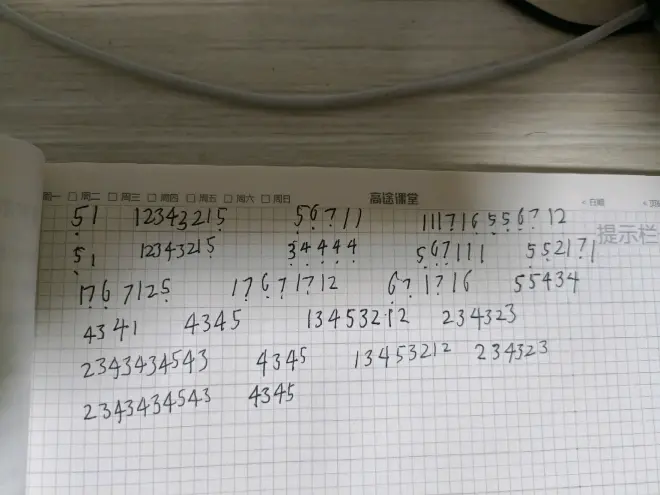 周一 □ 周二 □ 周三 □ 周四 □ 周五 □ 周六 □ 周日 高途课堂 < 日期 < 页码
提示栏
51 12343215 56711 11171655 6712
51 12343215 34444 567111 552171
1767125 17671712 671716 55434
4341 4345 13453212 234323
2343434543 4345 13453212 234323
2343434543 4345